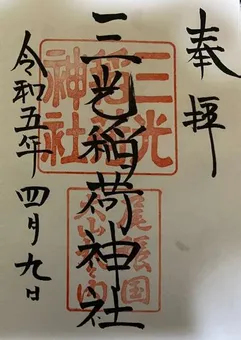 奉拝
三光稲荷神社
令和五年四月九日
三光
稲荷
神社
尾張国